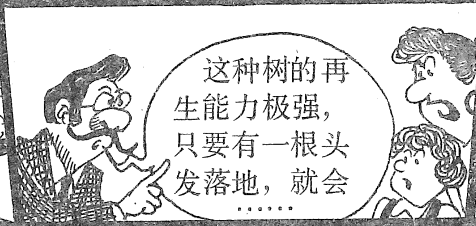 这种树的再
生能力极强，
只要有一根头
发落地，就会
……